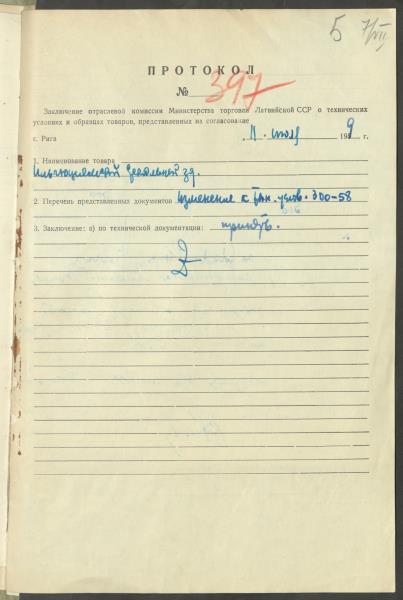 5 7/VII
ПРОТОКОЛ
№ 397
Заключение отраслевой комиссии Министерства торговли Латвийской ССР о технических
условиях и образцах товаров, представленных на согласование
г. Рига 11. июля 1959 г.
1. Наименование товара
2. Перечень представленных документов изменение к Тех. услов. 300-58
3. Заключение: а) по технической документации: принять.